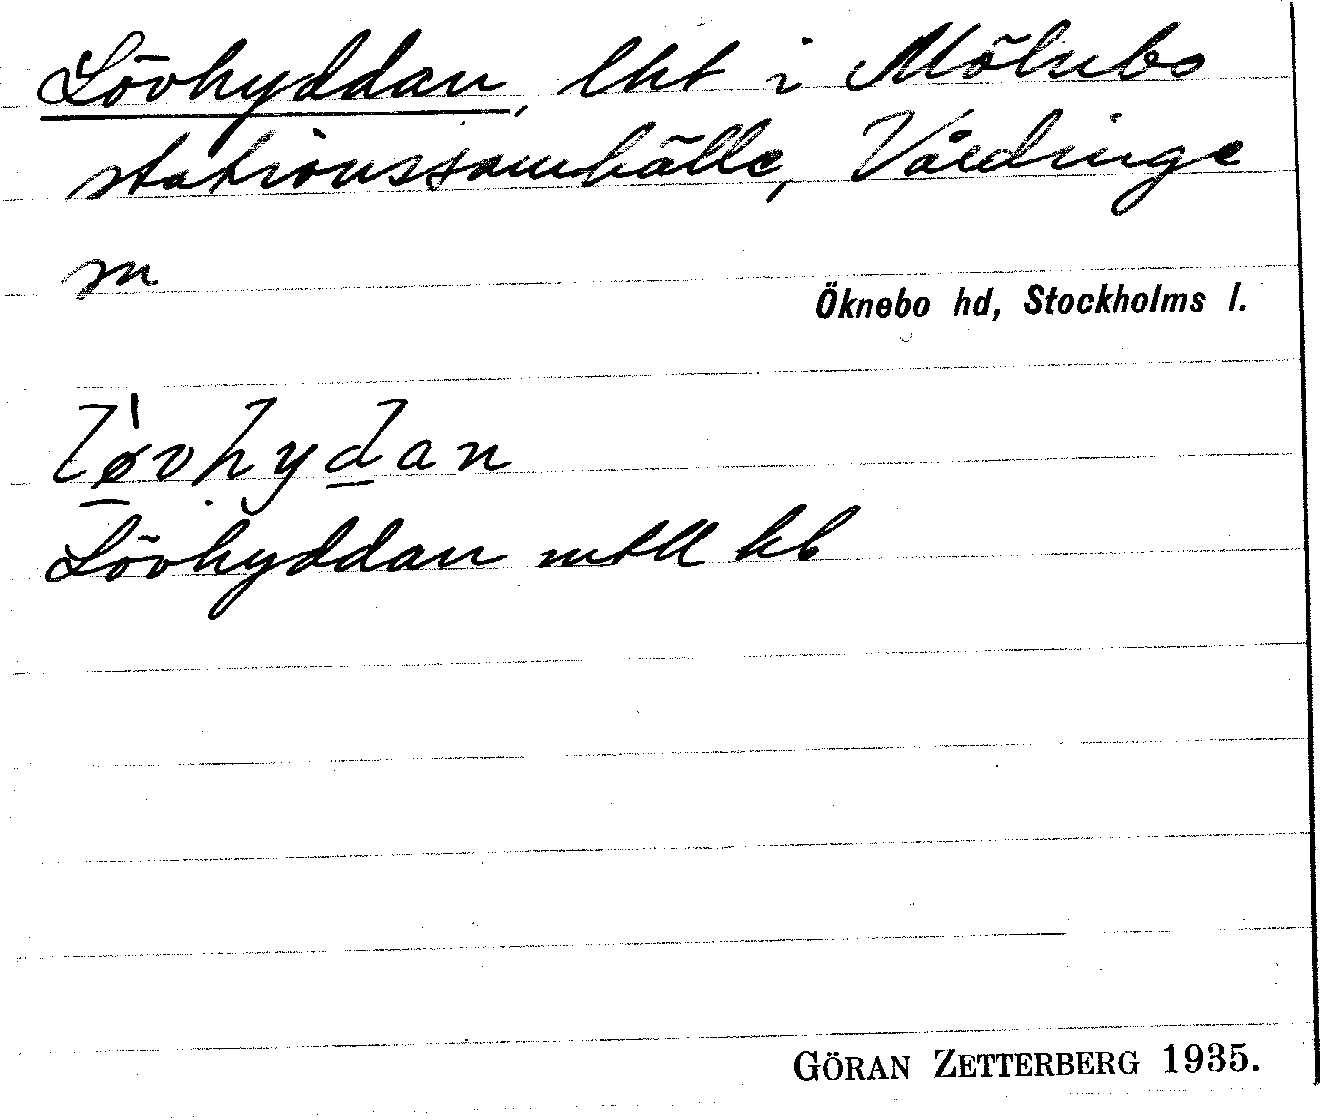 Lövhyddan, lht i Mölnbo
stationssamhälle, Vårdinge
sn
Öknebo hd, Stockholms l.
lø̀vhydan
Lövhyddan mtll kb
GÖRAN ZETTERBERG 1935.